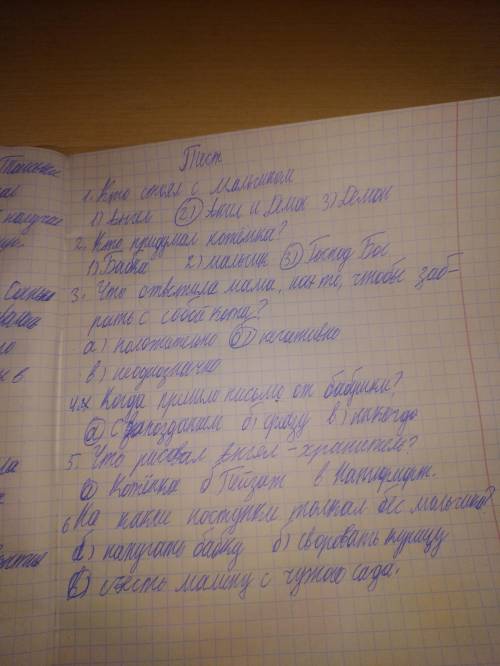 Тест.
1. Кто стоял с мальчиком
1) Ангел 2) Ангел и Демон 3) Демон
2. Кто придумал котёнка?
1) Бабка 2) мальчик 3) Господ Бог
3. Что ответила мама, на то, чтобы заб-
рать с собой кота?
а) положительно б) негативно
в) неоднозначно
4. Когда пришло письмо от бабушки?
а) С запозданием б) сразу в) никогда
5. Что рисовал ангел-хранитель?
а) Котёнка б Пейзаж в Натюрморт.
6 На какие поступки толкал бес мальчика?
а) напугать бабку б) своровать курицу
в) съесть малину с чужого сада.